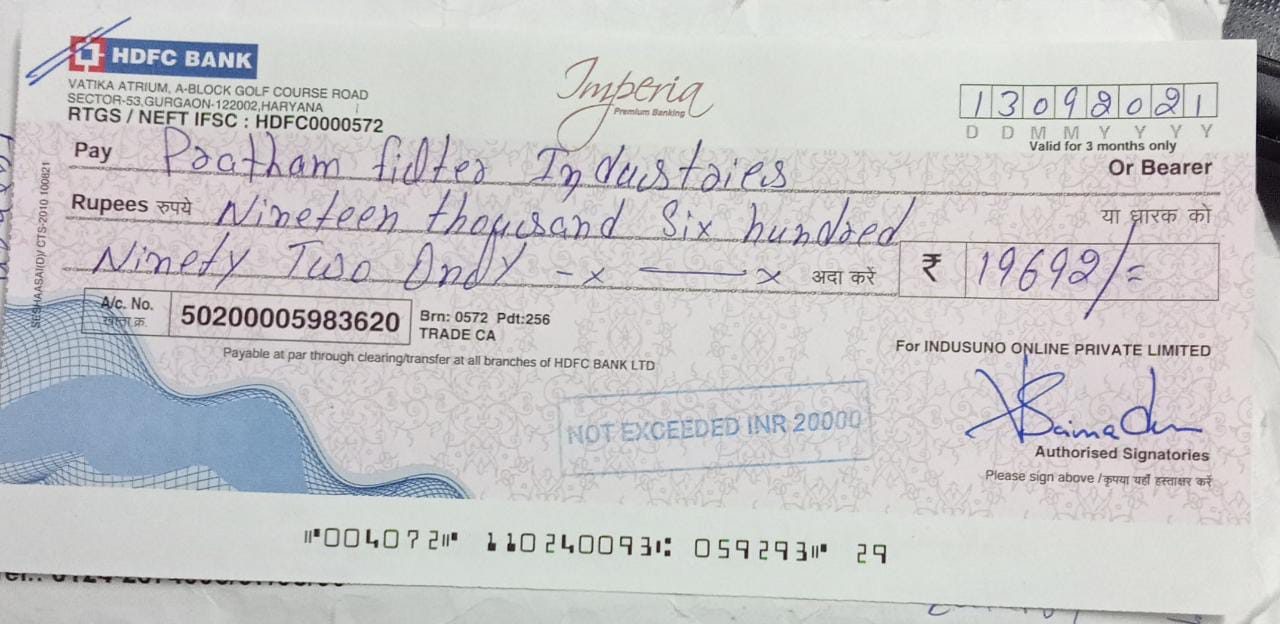 HDFC BANK
VATIKA ATRIUM, A-BLOCK GOLF COURSE ROAD
SECTOR-53,GURGAON-122002,HARYANA
RTGS / NEFT IFSC : HDFC0000572
Imperia
Premium Banking
13092021
D D M M Y Y Y Y
Valid for 3 months only
Pay Pratham filter Industries Or Bearer
Rupees रुपये Nineteen thousand Six hundred या धारक को
Ninety Two Only - x ——— x अदा करें ₹ 19692/=
A/c. No.
खाता क्र.
50200005983620
Brn: 0572 Pdt:256
TRADE CA
Payable at par through clearing/transfer at all branches of HDFC BANK LTD
For INDUSUNO ONLINE PRIVATE LIMITED
NOT EXCEEDED INR 20000
Authorised Signatories
Please sign above /कृपया यहाँ हस्ताक्षर करें
⑈004072⑈ 110240093⑆ 059293⑈ 29